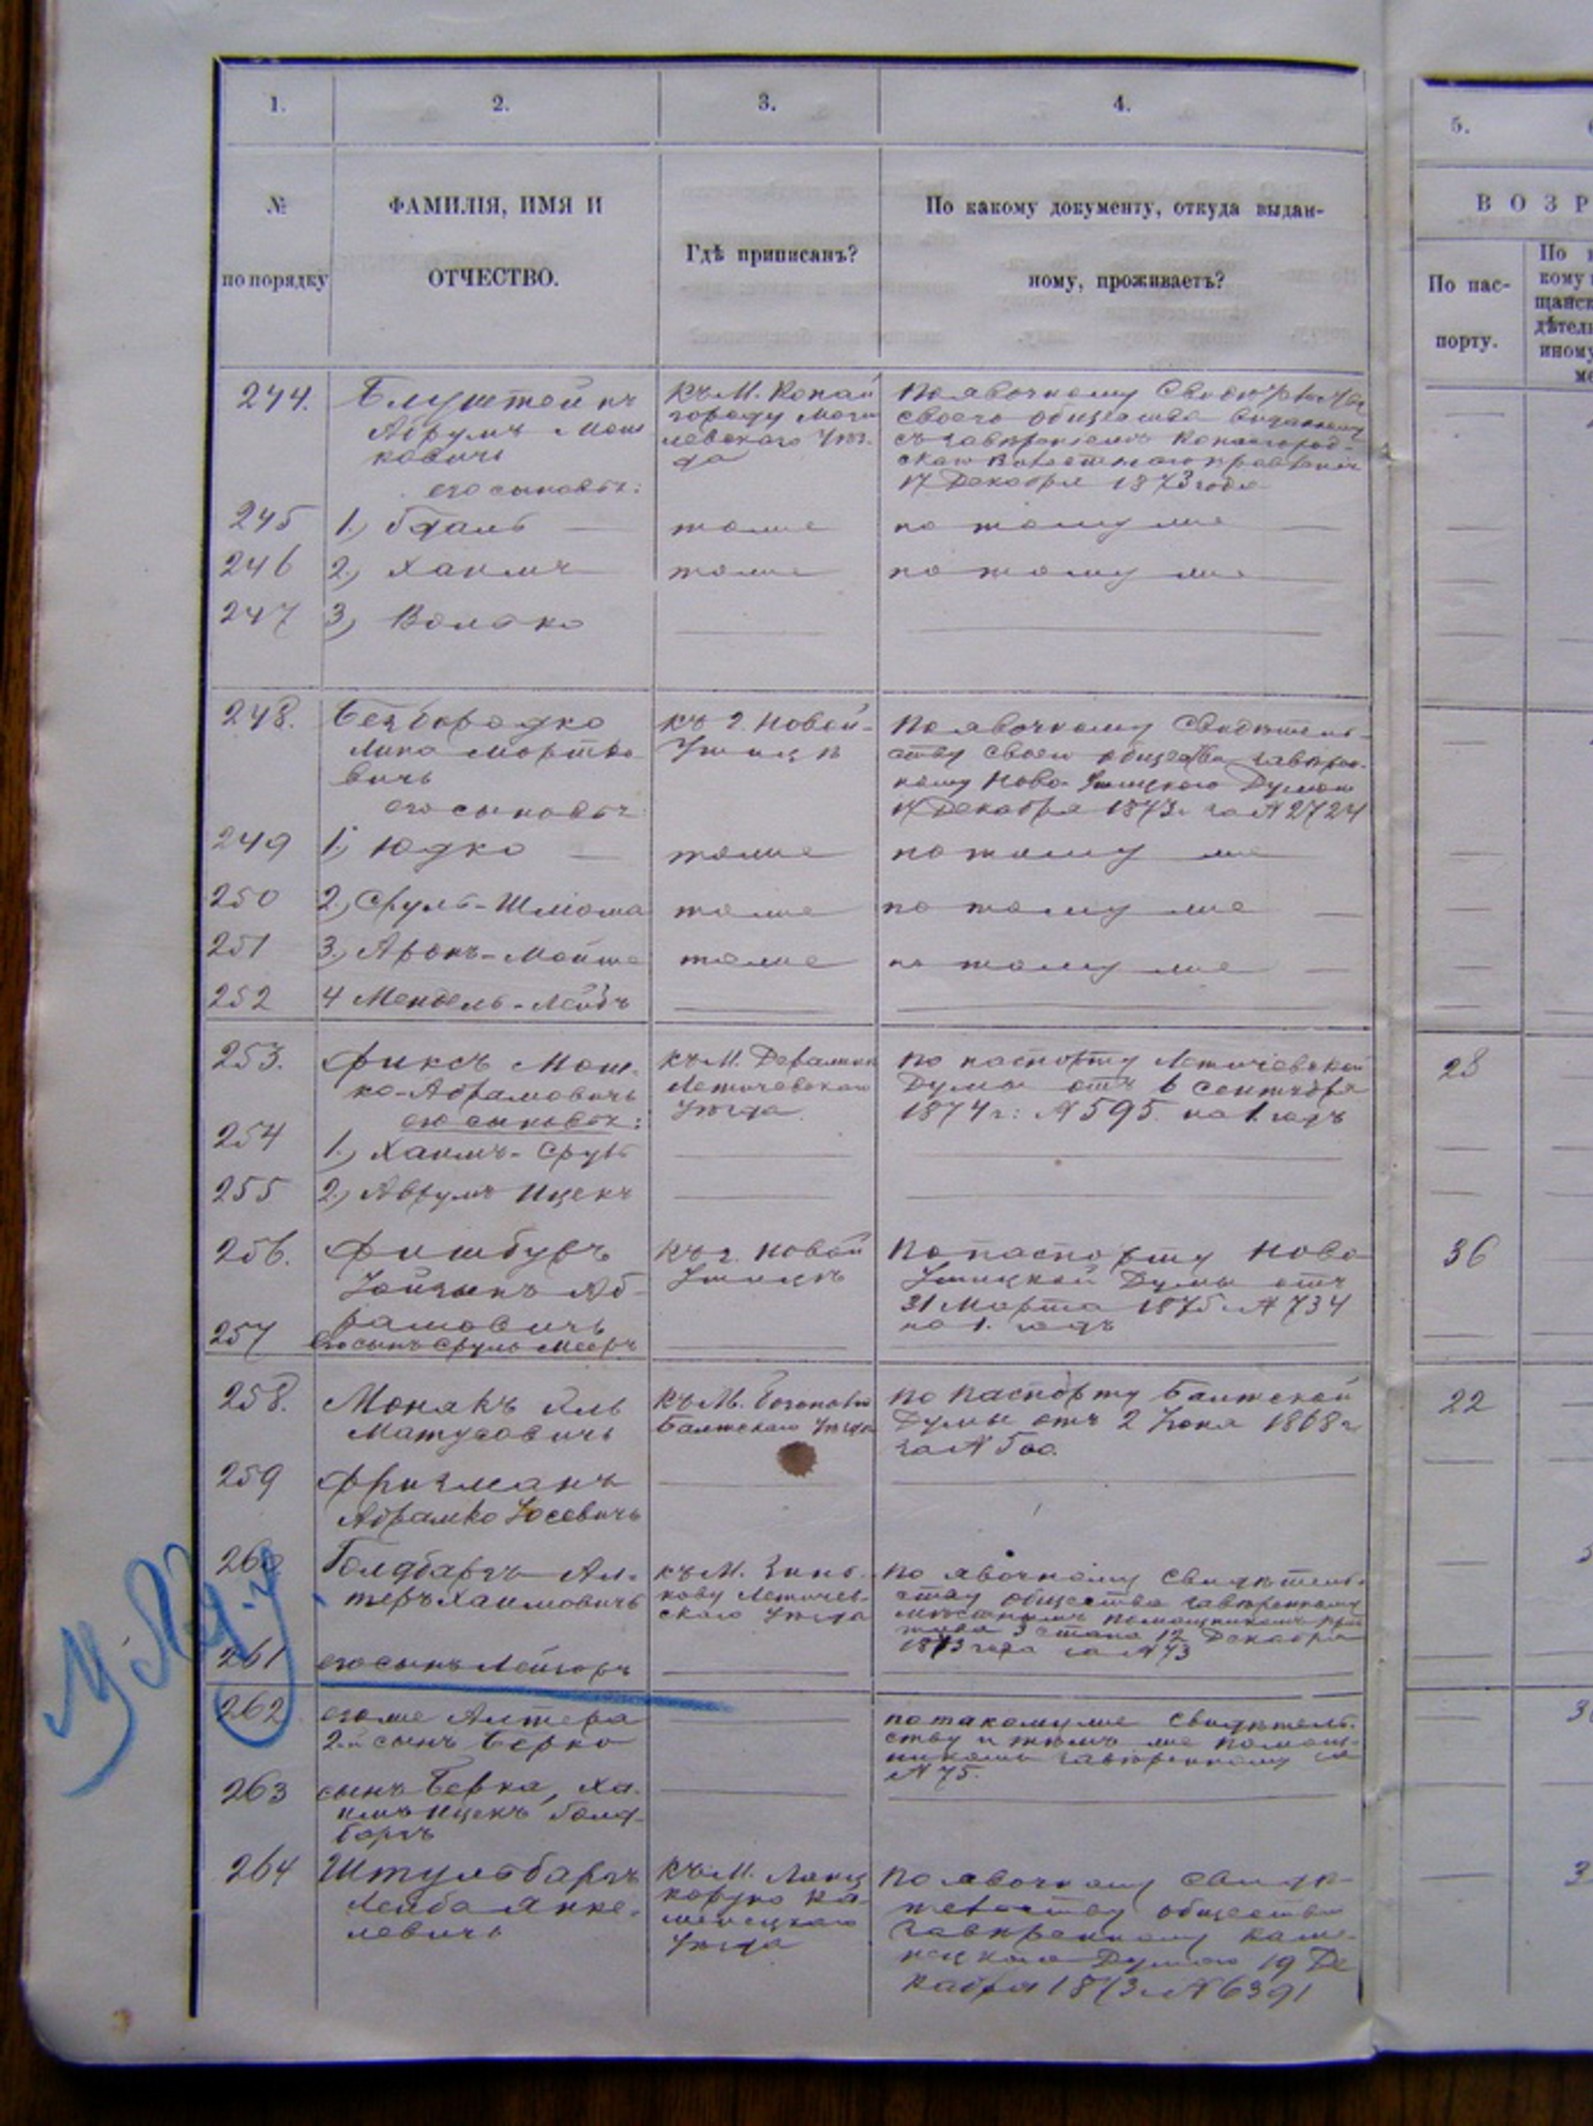 1. 2. 3. 4. 5.
№ по порядку
ФАМИЛІЯ, ИМЯ И
ОТЧЕСТВО.
Гдѣ приписанъ?
По какому документу, откуда выдан-
ному, проживаетъ?
ВОЗР
По пас-
порту.
244.
Блуштейнъ
Абрумъ Мош
ковичъ
его сыновья:
Къ М. Копай
городу Моги
левского Уѣз
да
По явочному
своего общества выданному
17 Декабря 1873 года
245 1.) тоже по тому же
246 2.) Хаимъ тоже по тому же
247 3) Волько
248.
Безбородко
Липа Мортко
вичъ
его сыновья:
къ г. Новой-
Ушицѣ
По явочному Свидѣтель-
ству своего общества завѣрен-
ному Ново-Ушицкою Думою
17 Декабря 1873 г. за № 2724
249 1.) Юдко тоже по тому же
250 2.) Сруль-Шліома тоже по тому же
251 3.) Аронъ-Мойше тоже по тому же
252 4 Мендель-Лейбъ
253.
Фиксъ Мош-
ко-Абрамовичъ
его сыновья:
къ М. Деражни
Летичевскаго
Уѣзда
По паспорту Летичевской
Думы отъ 6 Сентября
1874 г: № 595 на 1. годъ
28
254 1.) Хаимъ-Сруль
255 2.) Аврумъ Ицекъ
256.
Фишбурѣ
Аб-
рамовичъ
къ г. Новой
Ушицѣ
По паспорту Ново
Ушицкой Думы отъ
31 Марта 1875 г. № 734
на 1. годъ
36
257 его сынъ Сруль Мееръ
258.
Монакъ Эль
Матусовичъ
къ М.
Балтскаго Уѣзда
По паспорту Балтской
Думы отъ 2 Іюня 1868 г
за № 500.
22
259
Фригманъ
Абрамко Іосевичъ
260.
Голдбаргъ Ал-
теръ Хаимовичъ
къ М. Зинь-
кову Летичев-
скаго Уѣзда
По явочному свидѣтель-
ству общества завѣренному
мѣстнымъ помощникомъ при
става 3 стана 12 Декабря
1873 года за № 73
261 его сынъ Лейзоръ
262
его же Алтера
2-й сынъ Берко
по такому же свидѣтель-
ству и тѣмъ же помощ-
никомъ завѣренному за
№ 75.
263
сынъ Берка, Ха-
имъ Ицекъ Голд-
баргъ
264
Штульбаргъ
Лейба Янке-
левичъ
къ М. Ланц
коруно Ка-
менецкаго
Уѣзда
По явочному свидѣ-
тельству общества
завѣренному Каме-
нецкою Думою 19 Де
кабря 1873 г. № 6391